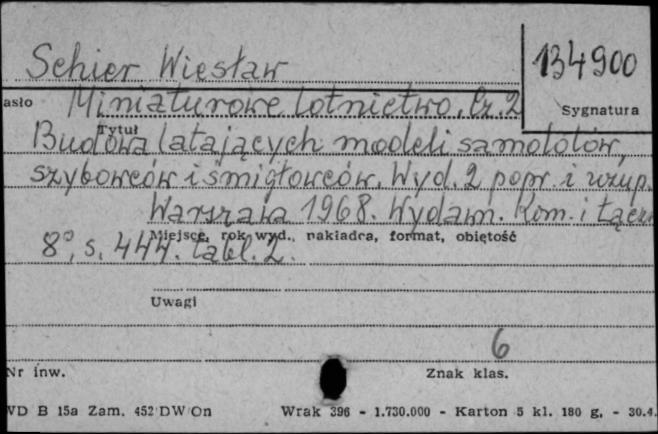 Schier Wiesław
134900
asło Miniaturowe lotnictwo. Cz. 2
Sygnatura
Tytuł
Budowa latających modeli samolotów,
szybowców i śmigłowców. Wyd. 2 popr. i uzup.
Warszawa 1968. Wydawn. Kom. i Łączn
Miejsce, rok wyd., nakładca, format, objętość
8°, s. 444. tabl. 2.
Uwagi
6
Nr inw.
Znak klas.
WD B 15a Zam. 452 DW On Wrak 396 - 1.730.000 - Karton 5 kl. 180 g. - 30.4.